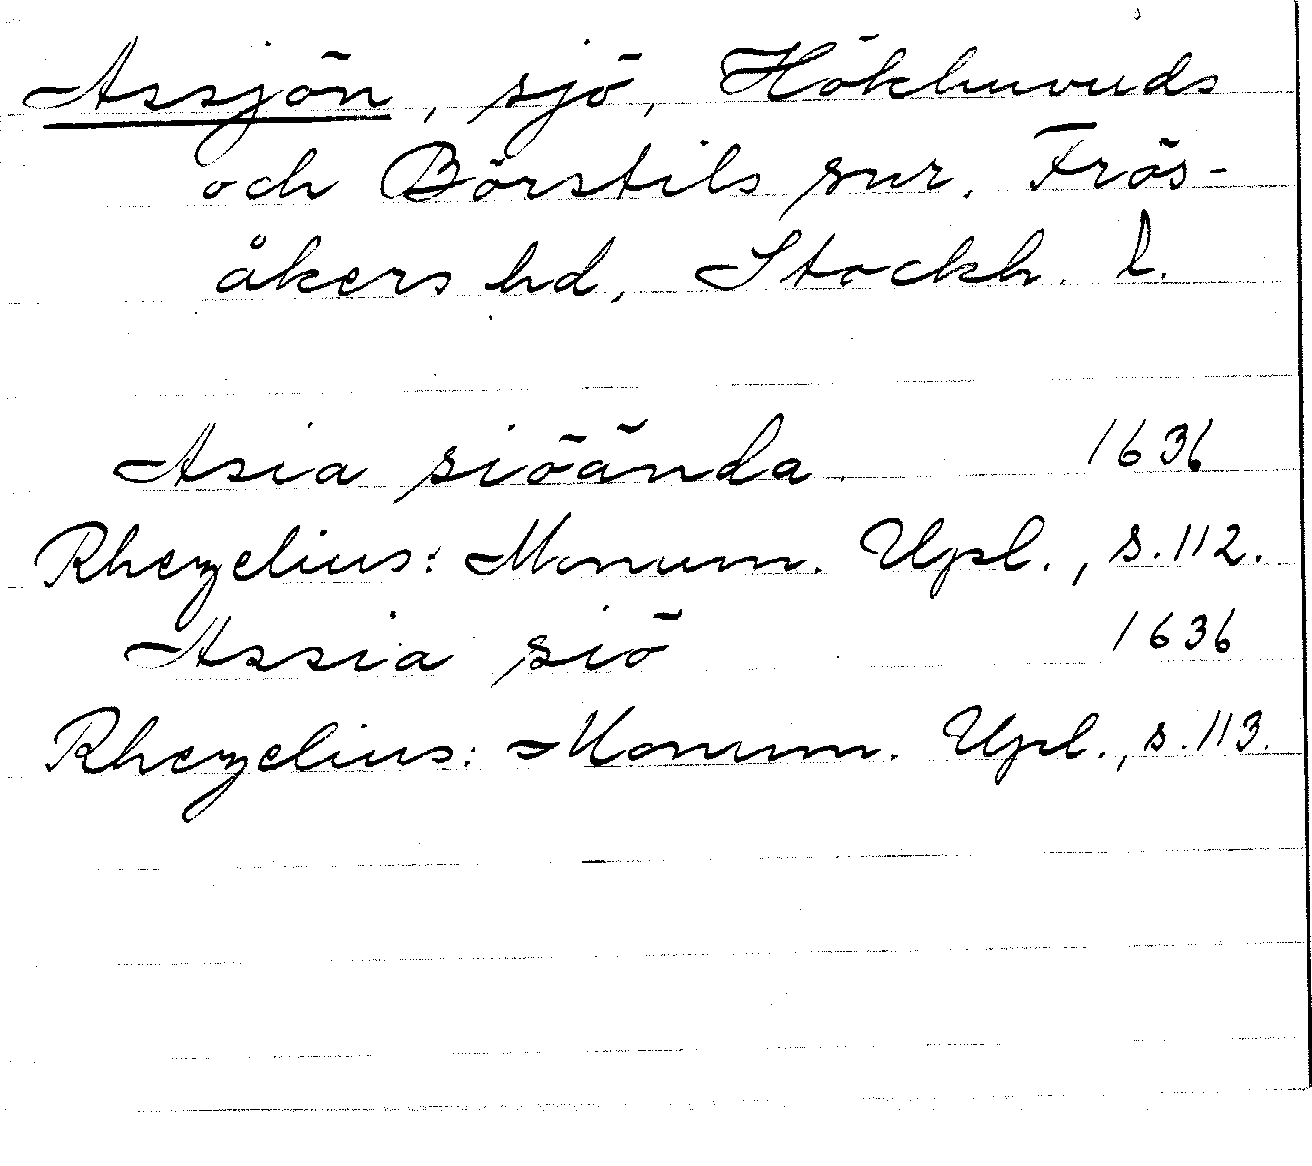 Assjön, sjö, Hökhuvuds
och Börstils snr. Frös-
åkers hd, Stockh. l.
Asia siöända 1636
Rhezelius: Monum. Upl., s. 112.
Assia siö 1636
Rhezelius: Monum. Upl., s. 113.